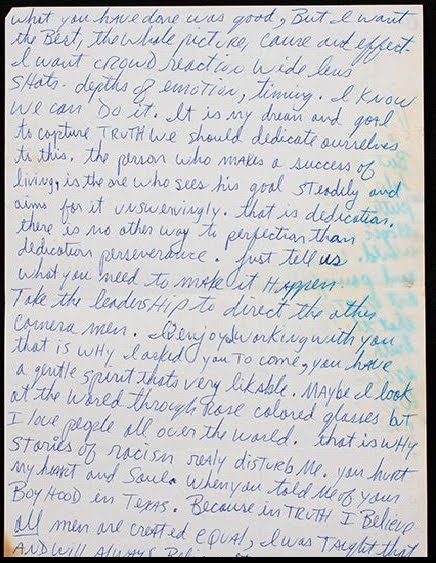 what you have done was good, But I want
the Best, the whole picture, cause and effect.
I want CROWD reaction wide lens
SHOTS - depths of emotion, timing. I KNOW
We can Do it. It is my dream and goal
to capture TRUTH We should dedicate ourselves
to this. the person who makes a success of
living, is the one who sees his goal steadily and
aims for it unswervingly. that is dedication.
there is no other way to perfection than
dedication perseverance. Just tell us
what you need to make it Happen.
Take the leadership to direct the other
camera men. I enjoy working with you
that is WHY I asked you to come, you HAVE
a gentle spirit thats very likable. MAYbe I look
at the world through rose colored glasses but
I love people all over the world. that is WHY
stories of racism realy disturb Me. you hurt
my heart and Soul. When you told Me of your
BoyHOOD in TEXAS. Because in TRUTH I Believe
all men are created EQUAL, I was TAUGHT that
AND Will ALWAYS